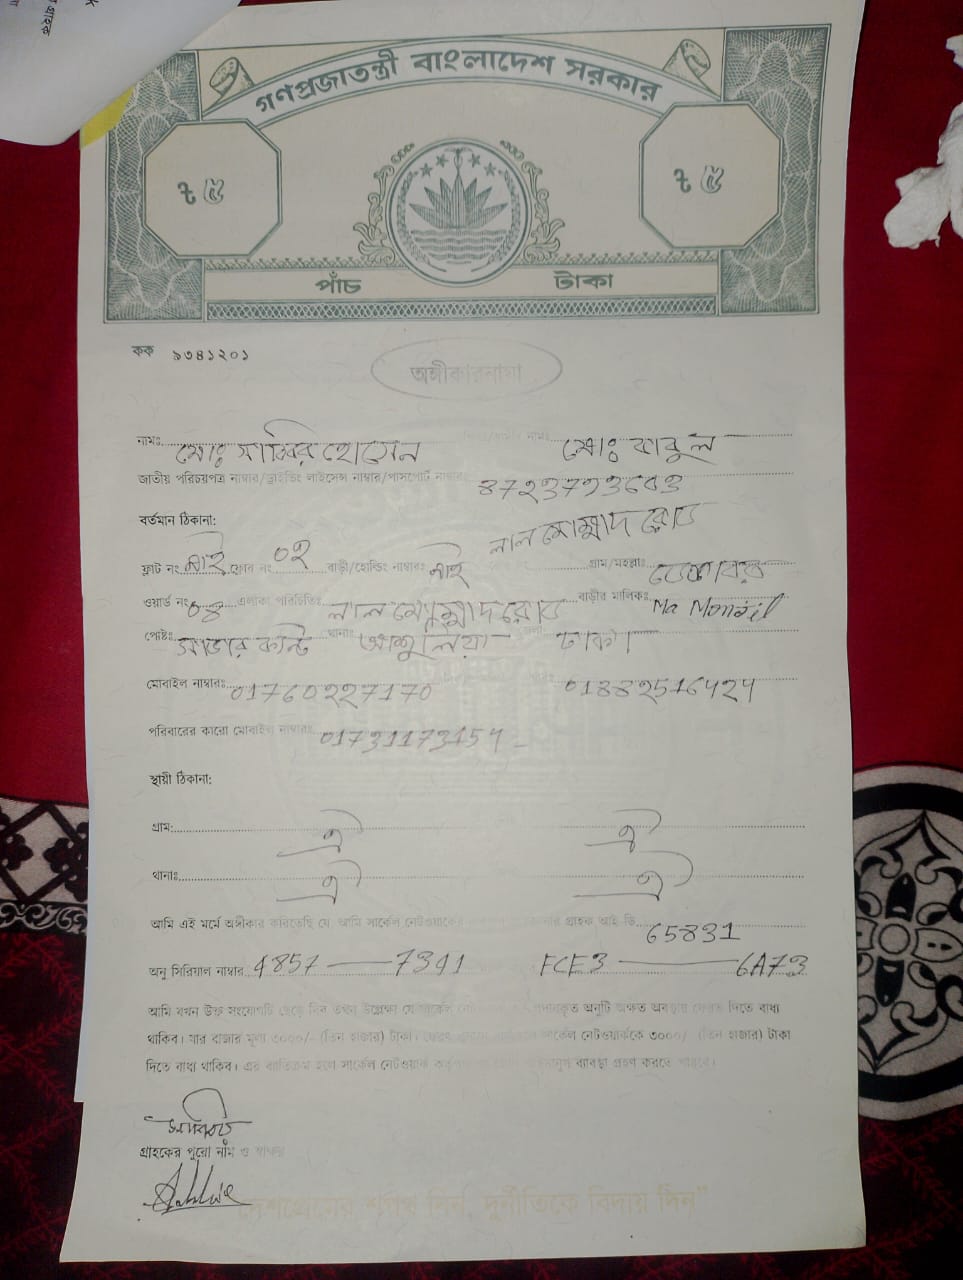 গ্রাহক
গণপ্রজাতন্ত্রী বাংলাদেশ সরকার
৳ ৫ ৳ ৫
পাঁচ টাকা
কক ৯৩৪১২০১
অঙ্গীকারনামা
নামঃ মোঃ সাব্বির হোসেন মোঃ বাবুল
জাতীয় পরিচয়পত্র নাম্বার/ড্রাইভিং লাইসেন্স নাম্বার/পাসপোর্ট নাম্বারঃ
বর্তমান ঠিকানা:
লাল মোহাম্মাদ রোড
ফ্লাট নং নাই ফ্লোর নং ০২ বাড়ী/হোল্ডিং নাম্বারঃ নাই গ্রাম/মহল্লাঃ
ওয়ার্ড নং ০৪ এলাকা পরিচিতিঃ লাল মোহাম্মাদ রোড বাড়ীর মালিকঃ Ma Monjil
পোষ্টঃ সাভার ক্যান্ট থানাঃ আশুলিয়া ঢাকা।
মোবাইল নাম্বারঃ 01760227170 01882516424
পরিবারের কারো মোবাইল নাম্বারঃ 01731173154
স্থায়ী ঠিকানা:
গ্রাম: ঐ ঐ
থানাঃ ঐ ঐ
আমি এই মর্মে অঙ্গীকার করিতেছি যে, আমি সার্কেল নেটওয়ার্কের গ্রাহক আই ডি 65831
অনু সিরিয়াল নাম্বার 4857 — 7341 FCE3 — 6A73
আমি যখন উক্ত সংযোগটি ছেড়ে দিব তখন উল্লেখ্য যে সার্কেল অনুটি অক্ষত অবস্থায় ফেরত দিতে বাধ্য
থাকিব। যার বাজার মূল্য ৩০০০/- (তিন হাজার) টাকা। সার্কেল নেটওয়ার্ককে ৩০০০/- (তিন হাজার) টাকা
দিতে বাধ্য থাকিব। এর ব্যতিক্রম হলে সার্কেল নেটওয়ার্ক ব্যবস্থা গ্রহণ করতে পারবে।
সাব্বির
গ্রাহকের পুরো নাম ও স্বাক্ষর
দেশপ্রেমের শপথ নিন, দুর্নীতিকে বিদায় দিন"